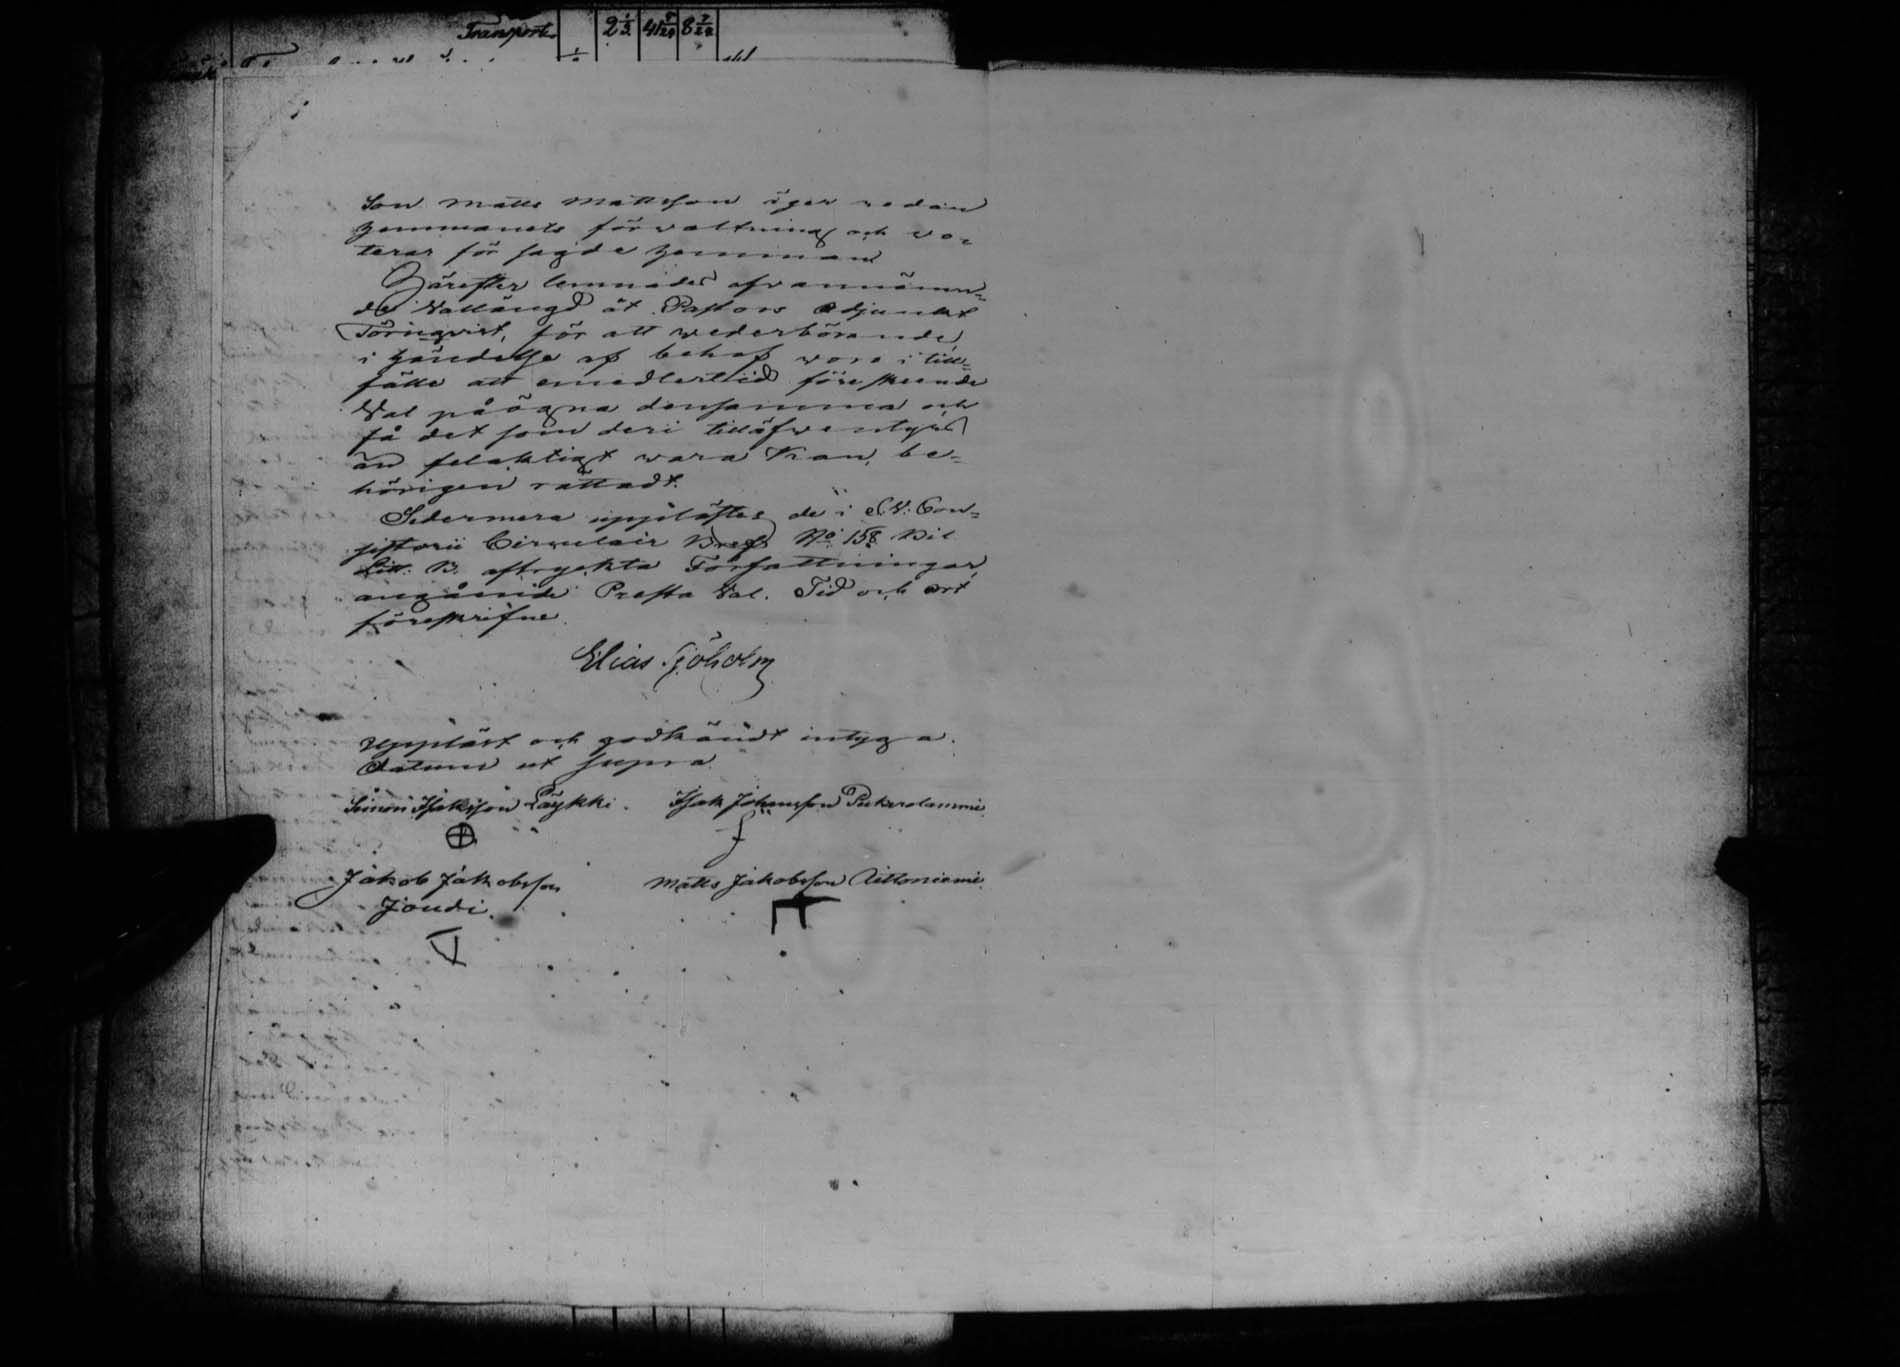 Transport 2 1/3 41 5/24 8 7/24
Son Matts Mattsson eger redan
hemmanets förvaltning och vo-
terar för sagde hemman
Härefter lemnades ofvannämn-
de Vallängd åt Pastors Adjunkt
Törnqvist, för att wederbörande,
i händelse af behof wore i till-
fälle att emedlertid föreskeende
Val påögna densamma och
få det som deri tilläfwentyrs
än felaktigt vara kan, be-
hörigen rättadt.
Sedermera upplästes de i E.V. Con-
sistorii Circulair Bref No 158 Bil
Litt. B. aftryckta Författningar,
angående Presta Val. Tid och ort
föreskrifne.
Elias Sjöholm
Uppläst och godkändt intyga.
Datum ut supra
Simon Isaksson Läykki. Isak Johansson
Jakob Jakobsson Matts Jakobsson
Joudi.